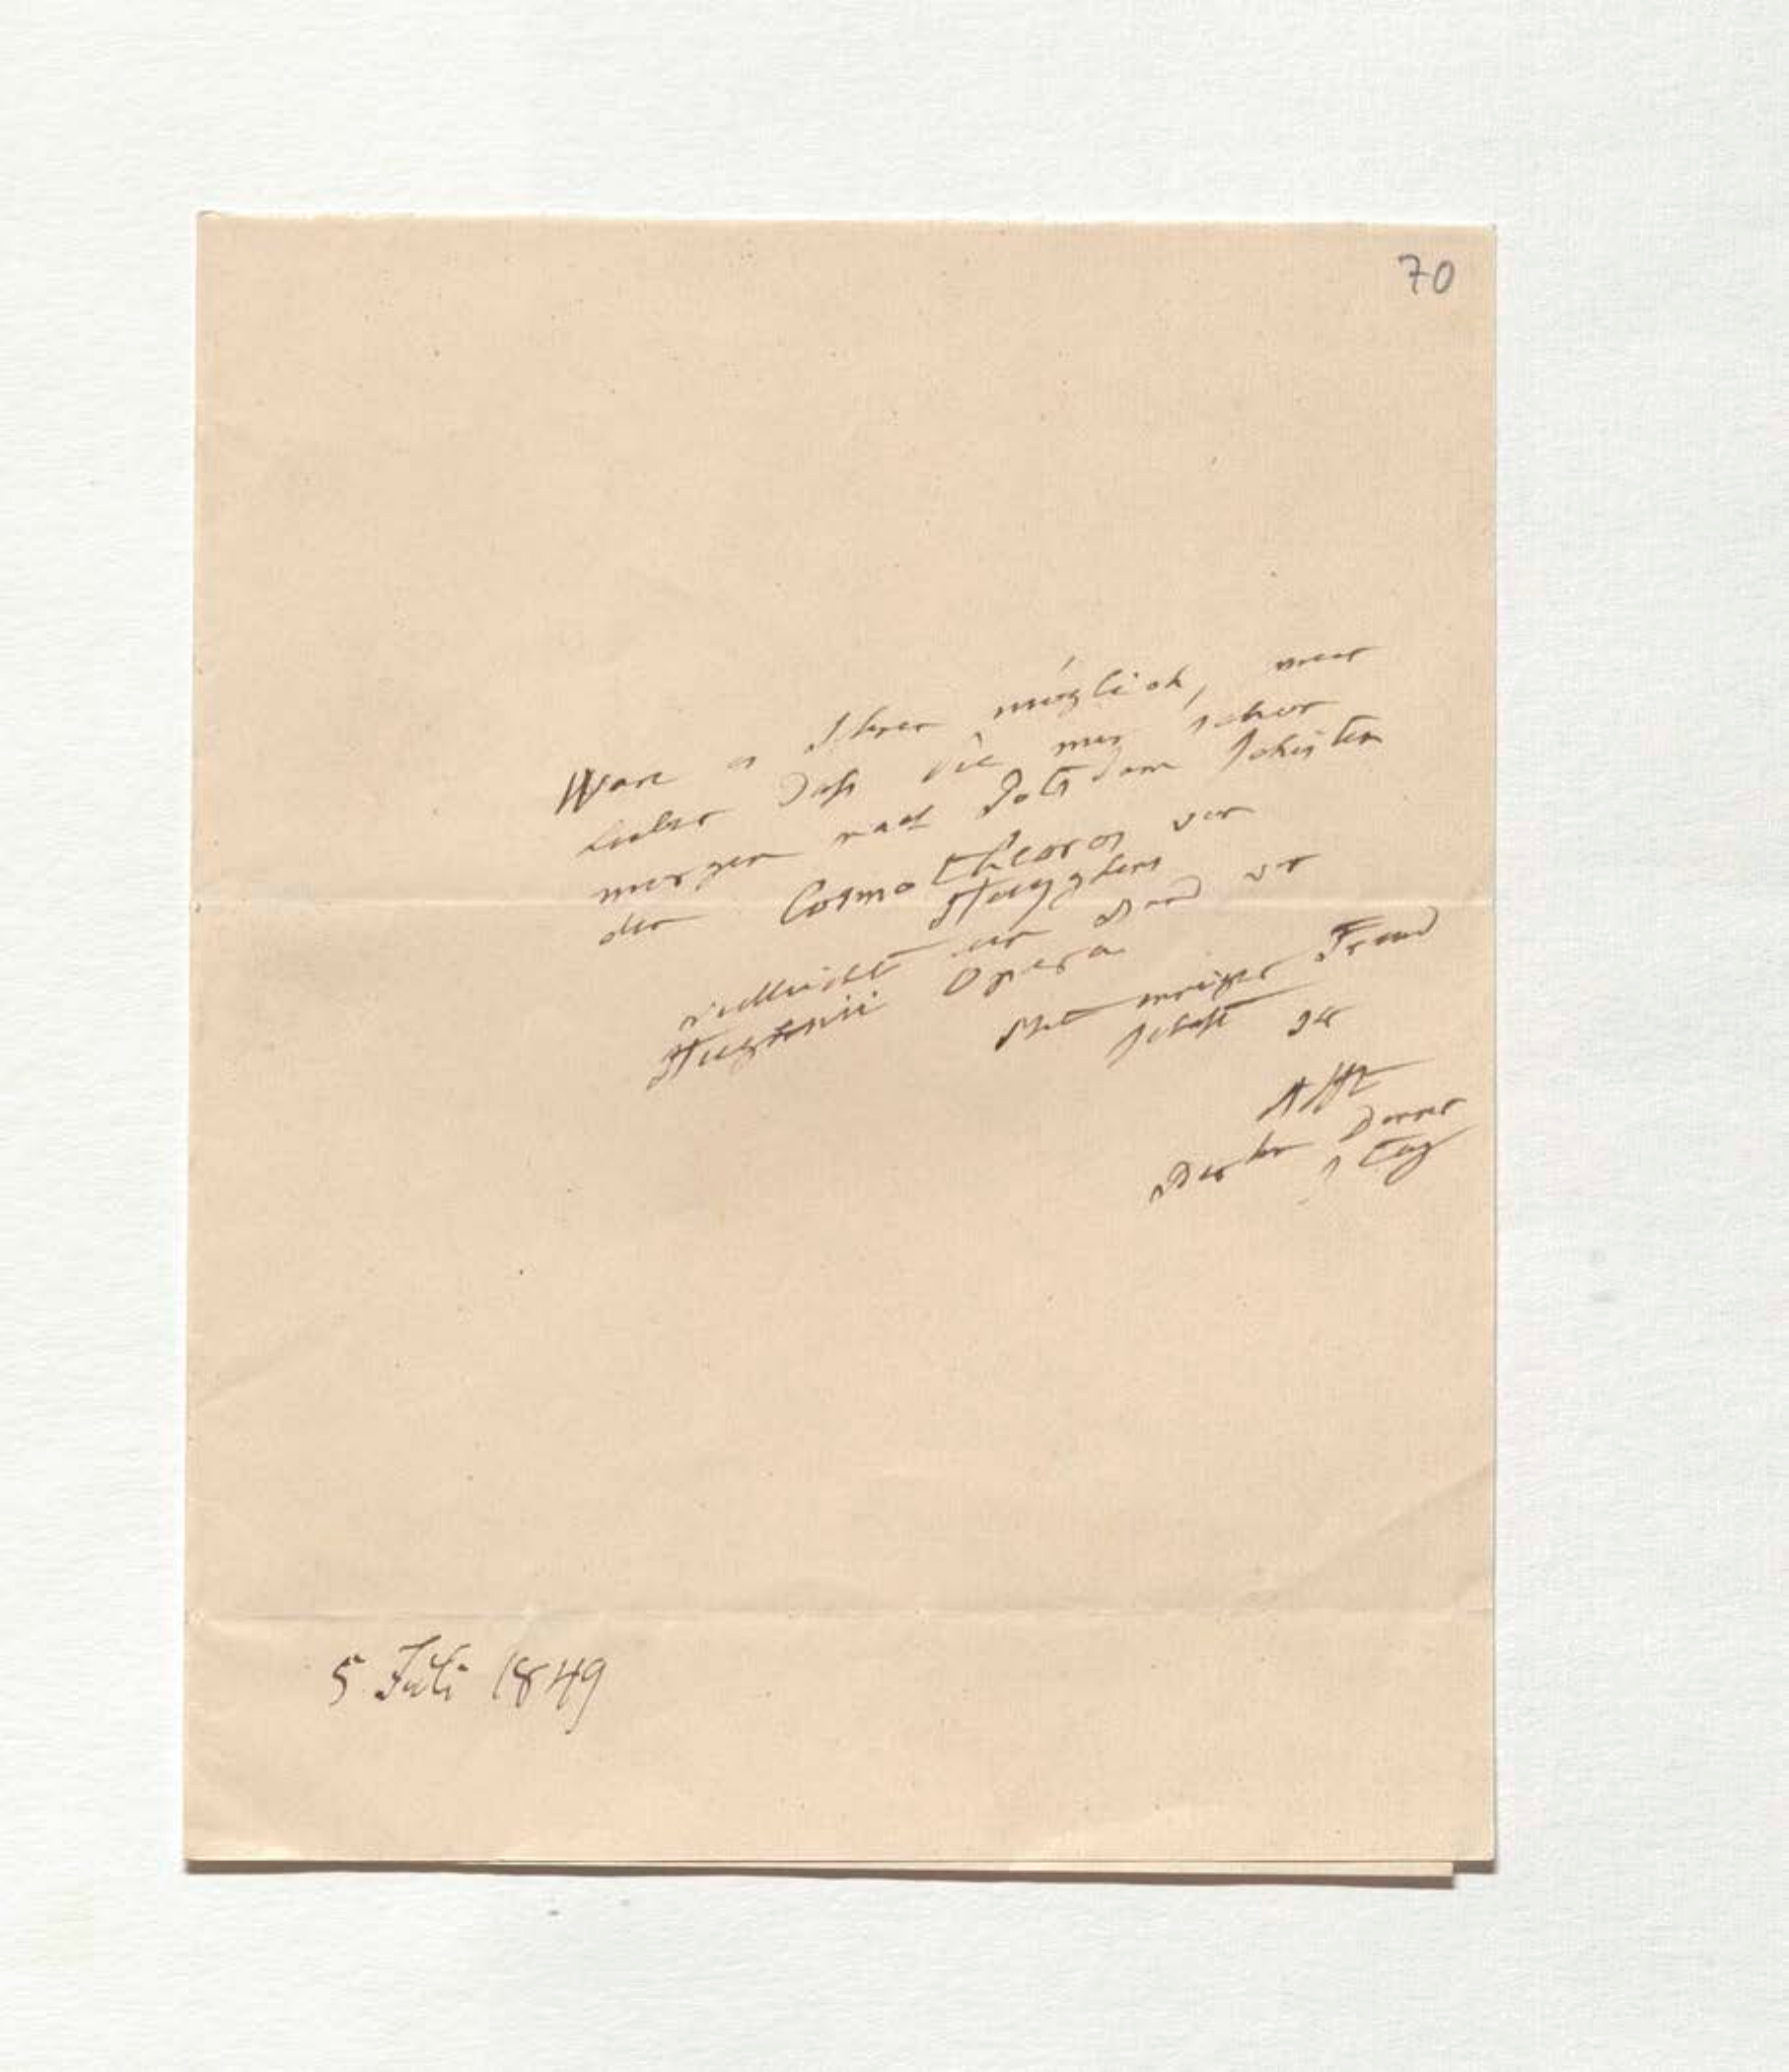 70
Wäre es Ihnen möglich, mein
Lieber daß Sie mir schon
morgen nach Potsdam schikten
den Cosmotheoros von
Huyghens
vielleicht ein Band von
Hugenii Opera
Mit inniger Freund
schaft Ihr
AHt
Berlin Donner
stag
5 Juli 1849